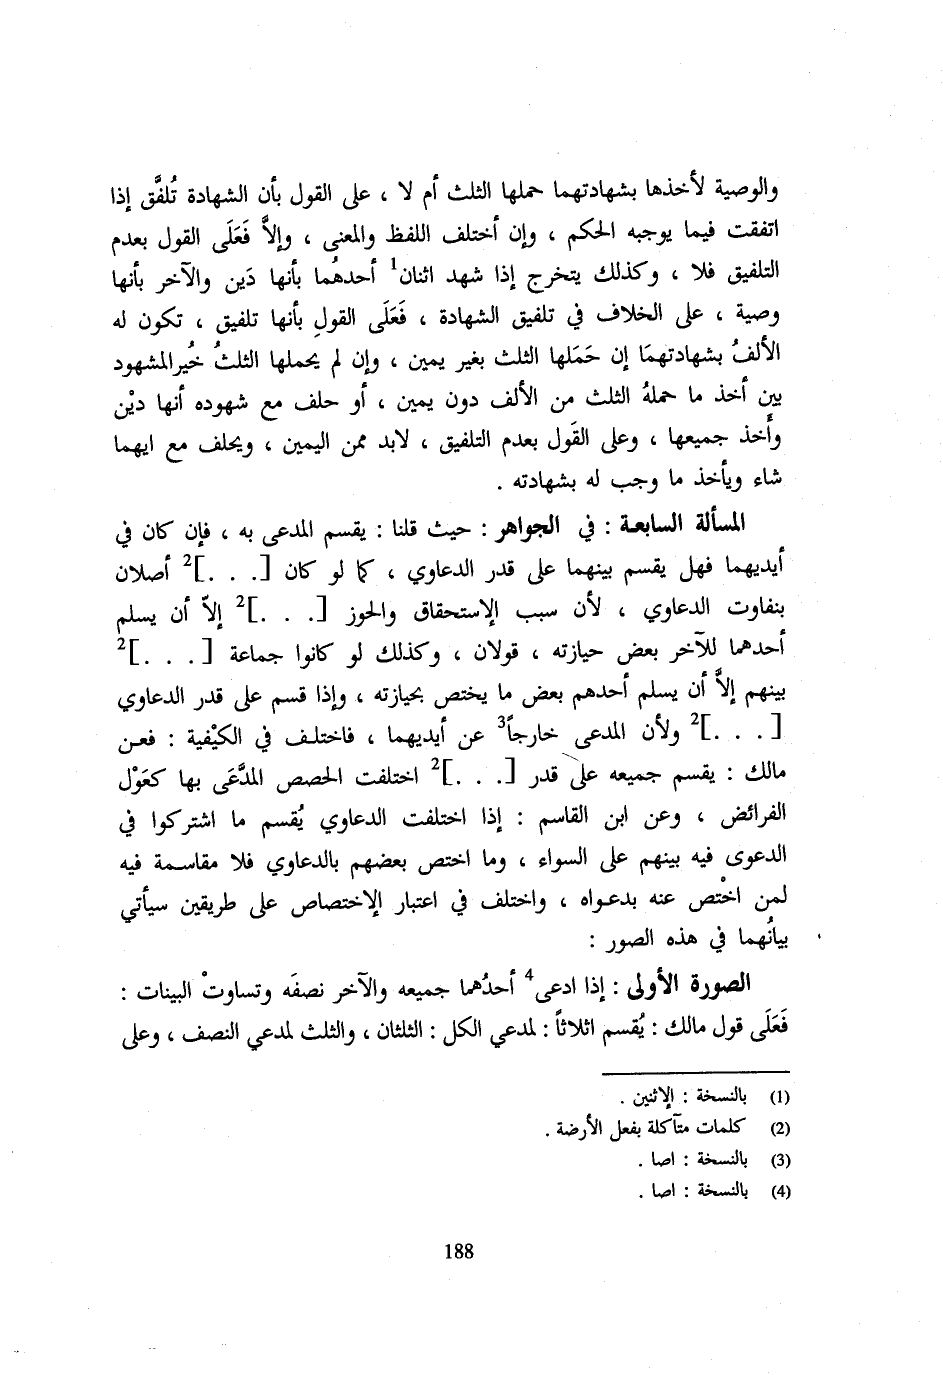 والوصية لأخذها بشهادتهما حملها الثلث أم لا ، على القول بأن الشهادة تُلفَّق إذا
اتفقت فيما يوجبه الحكم ، وإن أختلف اللفظ والمعنى ، وإلاَّ فَعَلَى القول بعدم
التلفيق فلا ، وكذلك يتخرج إذا شهد اثنان1 أحدهُما بأنها دَين والآخر بأنها
وصية ، على الخلاف في تلفيق الشهادة ، فَعَلَى القولِ بأنها تلفيق ، تكون له
الألفُ بشهادتهمَا إن حَمَلها الثلث بغير يمين ، وإن لم يحملها الثلثُ خُيرالمشهود
بين أخذ ما حملهُ الثلث من الألف دون يمين ، أو حلف مع شهوده أنها ديْن
وأَخذ جميعها ، وعلى القَول بعدم التلفيق ، لابد ممن اليمين ، ويحلف مع ايهما
شاء ويأخذ ما وجب له بشهادته .
المسألة السابعة : في الجواهر : حيث قلنا : يقسم المدعى به ، فإن كان في
أيديهما فهل يقسم بينهما على قدر الدعاوي ، كما لو كان [. . .]2 أصلان
بنفاوت الدعاوي ، لأن سبب الإستحقاق والحوز [. . .]2 إلاّ أن يسلم
أحدهما للآخر بعض حيازته ، قولان ، وكذلك لو كانوا جماعة [. . .]2
بينهم إلاَّ أن يسلم أحدهم بعض ما يختص بحيازته ، وإذا قسم على قدر الدعاوي
[. . .]2 ولأن المدعى خارجاً3 عن أيديهما ، فاختلف في الكيْفية : فعن
مالك : يقسم جميعه على قدر [. . .]2 اختلفت الحصص المدَّعَى بها كعَوْل
الفرائض ، وعن ابن القاسم : إذا اختلفت الدعاوي يُقسم ما اشتركوا في
الدعوى فيه بينهم على السواء ، وما اختص بعضهم بالدعاوي فلا مقاسمة فيه
لمن اخْتص عنه بدعواه ، واختلف في اعتبار الإختصاص على طريقين سيأتي
بيانُهما في هذه الصور :
الصورة الأولى : إذا ادعى4 أحدُهما جميعه والآخر نصفَه وتساوتْ البينات :
فَعَلَى قول مالك : يُقسم اثلاثاً : لمدعي الكل : الثلثان ، والثلث لمدعي النصف ، وعلى
(1) بالنسخة : الإثنين .
(2) كلمات متآكلة بفعل الأرضة .
(3) بالنسخة : اصا .
(4) بالنسخة : اصا .
188